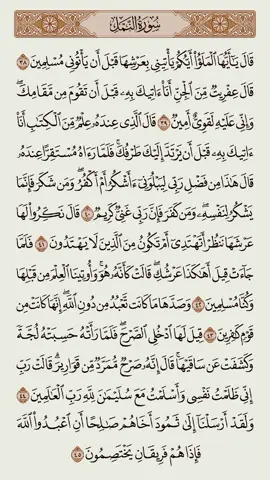 سُورَةُ النَّمۡلِ
قَالَ يَـٰٓأَيُّهَا ٱلۡمَلَؤُاْ أَيُّكُمۡ يَأۡتِينِي بِعَرۡشِهَا قَبۡلَ أَن يَأۡتُونِي مُسۡلِمِينَ ٣٨
قَالَ عِفۡرِيتٞ مِّنَ ٱلۡجِنِّ أَنَا۠ ءَاتِيكَ بِهِۦ قَبۡلَ أَن تَقُومَ مِن مَّقَامِكَۖ
وَإِنِّي عَلَيۡهِ لَقَوِيٌّ أَمِينٞ ٣٩ قَالَ ٱلَّذِي عِندَهُۥ عِلۡمٞ مِّنَ ٱلۡكِتَـٰبِ أَنَا۠
ءَاتِيكَ بِهِۦ قَبۡلَ أَن يَرۡتَدَّ إِلَيۡكَ طَرۡفُكَۚ فَلَمَّا رَءَاهُ مُسۡتَقِرًّا عِندَهُۥ
قَالَ هَـٰذَا مِن فَضۡلِ رَبِّي لِيَبۡلُوَنِيٓ ءَأَشۡكُرُ أَمۡ أَكۡفُرُۖ وَمَن شَكَرَ فَإِنَّمَا
يَشۡكُرُ لِنَفۡسِهِۦۖ وَمَن كَفَرَ فَإِنَّ رَبِّي غَنِيّٞ كَرِيمٞ ٤٠ قَالَ نَكِّرُواْ لَهَا
عَرۡشَهَا نَنظُرۡ أَتَهۡتَدِيٓ أَمۡ تَكُونُ مِنَ ٱلَّذِينَ لَا يَهۡتَدُونَ ٤١ فَلَمَّا
جَآءَتۡ قِيلَ أَهَـٰكَذَا عَرۡشُكِۖ قَالَتۡ كَأَنَّهُۥ هُوَۚ وَأُوتِينَا ٱلۡعِلۡمَ مِن قَبۡلِهَا
وَكُنَّا مُسۡلِمِينَ ٤٢ وَصَدَّهَا مَا كَانَت تَّعۡبُدُ مِن دُونِ ٱللَّهِۖ إِنَّهَا كَانَتۡ مِن
قَوۡمٖ كَـٰفِرِينَ ٤٣ قِيلَ لَهَا ٱدۡخُلِي ٱلصَّرۡحَۖ فَلَمَّا رَأَتۡهُ حَسِبَتۡهُ لُجَّةٗ
وَكَشَفَتۡ عَن سَاقَيۡهَاۚ قَالَ إِنَّهُۥ صَرۡحٞ مُّمَرَّدٞ مِّن قَوَارِيرَۗ قَالَتۡ رَبِّ
إِنِّي ظَلَمۡتُ نَفۡسِي وَأَسۡلَمۡتُ مَعَ سُلَيۡمَـٰنَ لِلَّهِ رَبِّ ٱلۡعَـٰلَمِينَ ٤٤
وَلَقَدۡ أَرۡسَلۡنَآ إِلَىٰ ثَمُودَ أَخَاهُمۡ صَـٰلِحًا أَنِ ٱعۡبُدُواْ ٱللَّهَ
فَإِذَا هُمۡ فَرِيقَانِ يَخۡتَصِمُونَ ٤٥